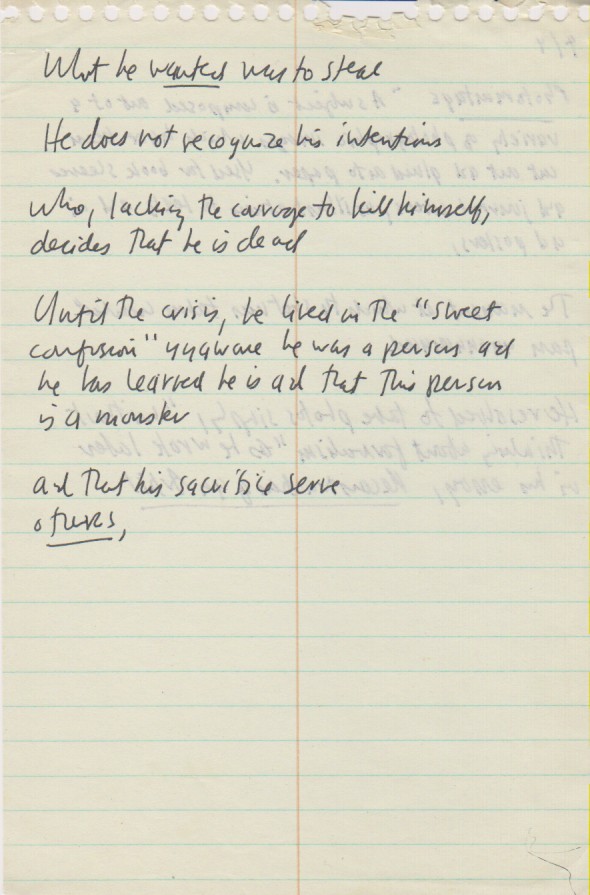 What he wanted was to steal
He does not recognize his intentions
who, lacking the courage to kill himself,
decides that he is dead
Until the crisis, he lived in the "sweet
confusion" unaware he was a person and
he has learned he is and that this person
is a monster
and that his sacrifice serve
others,